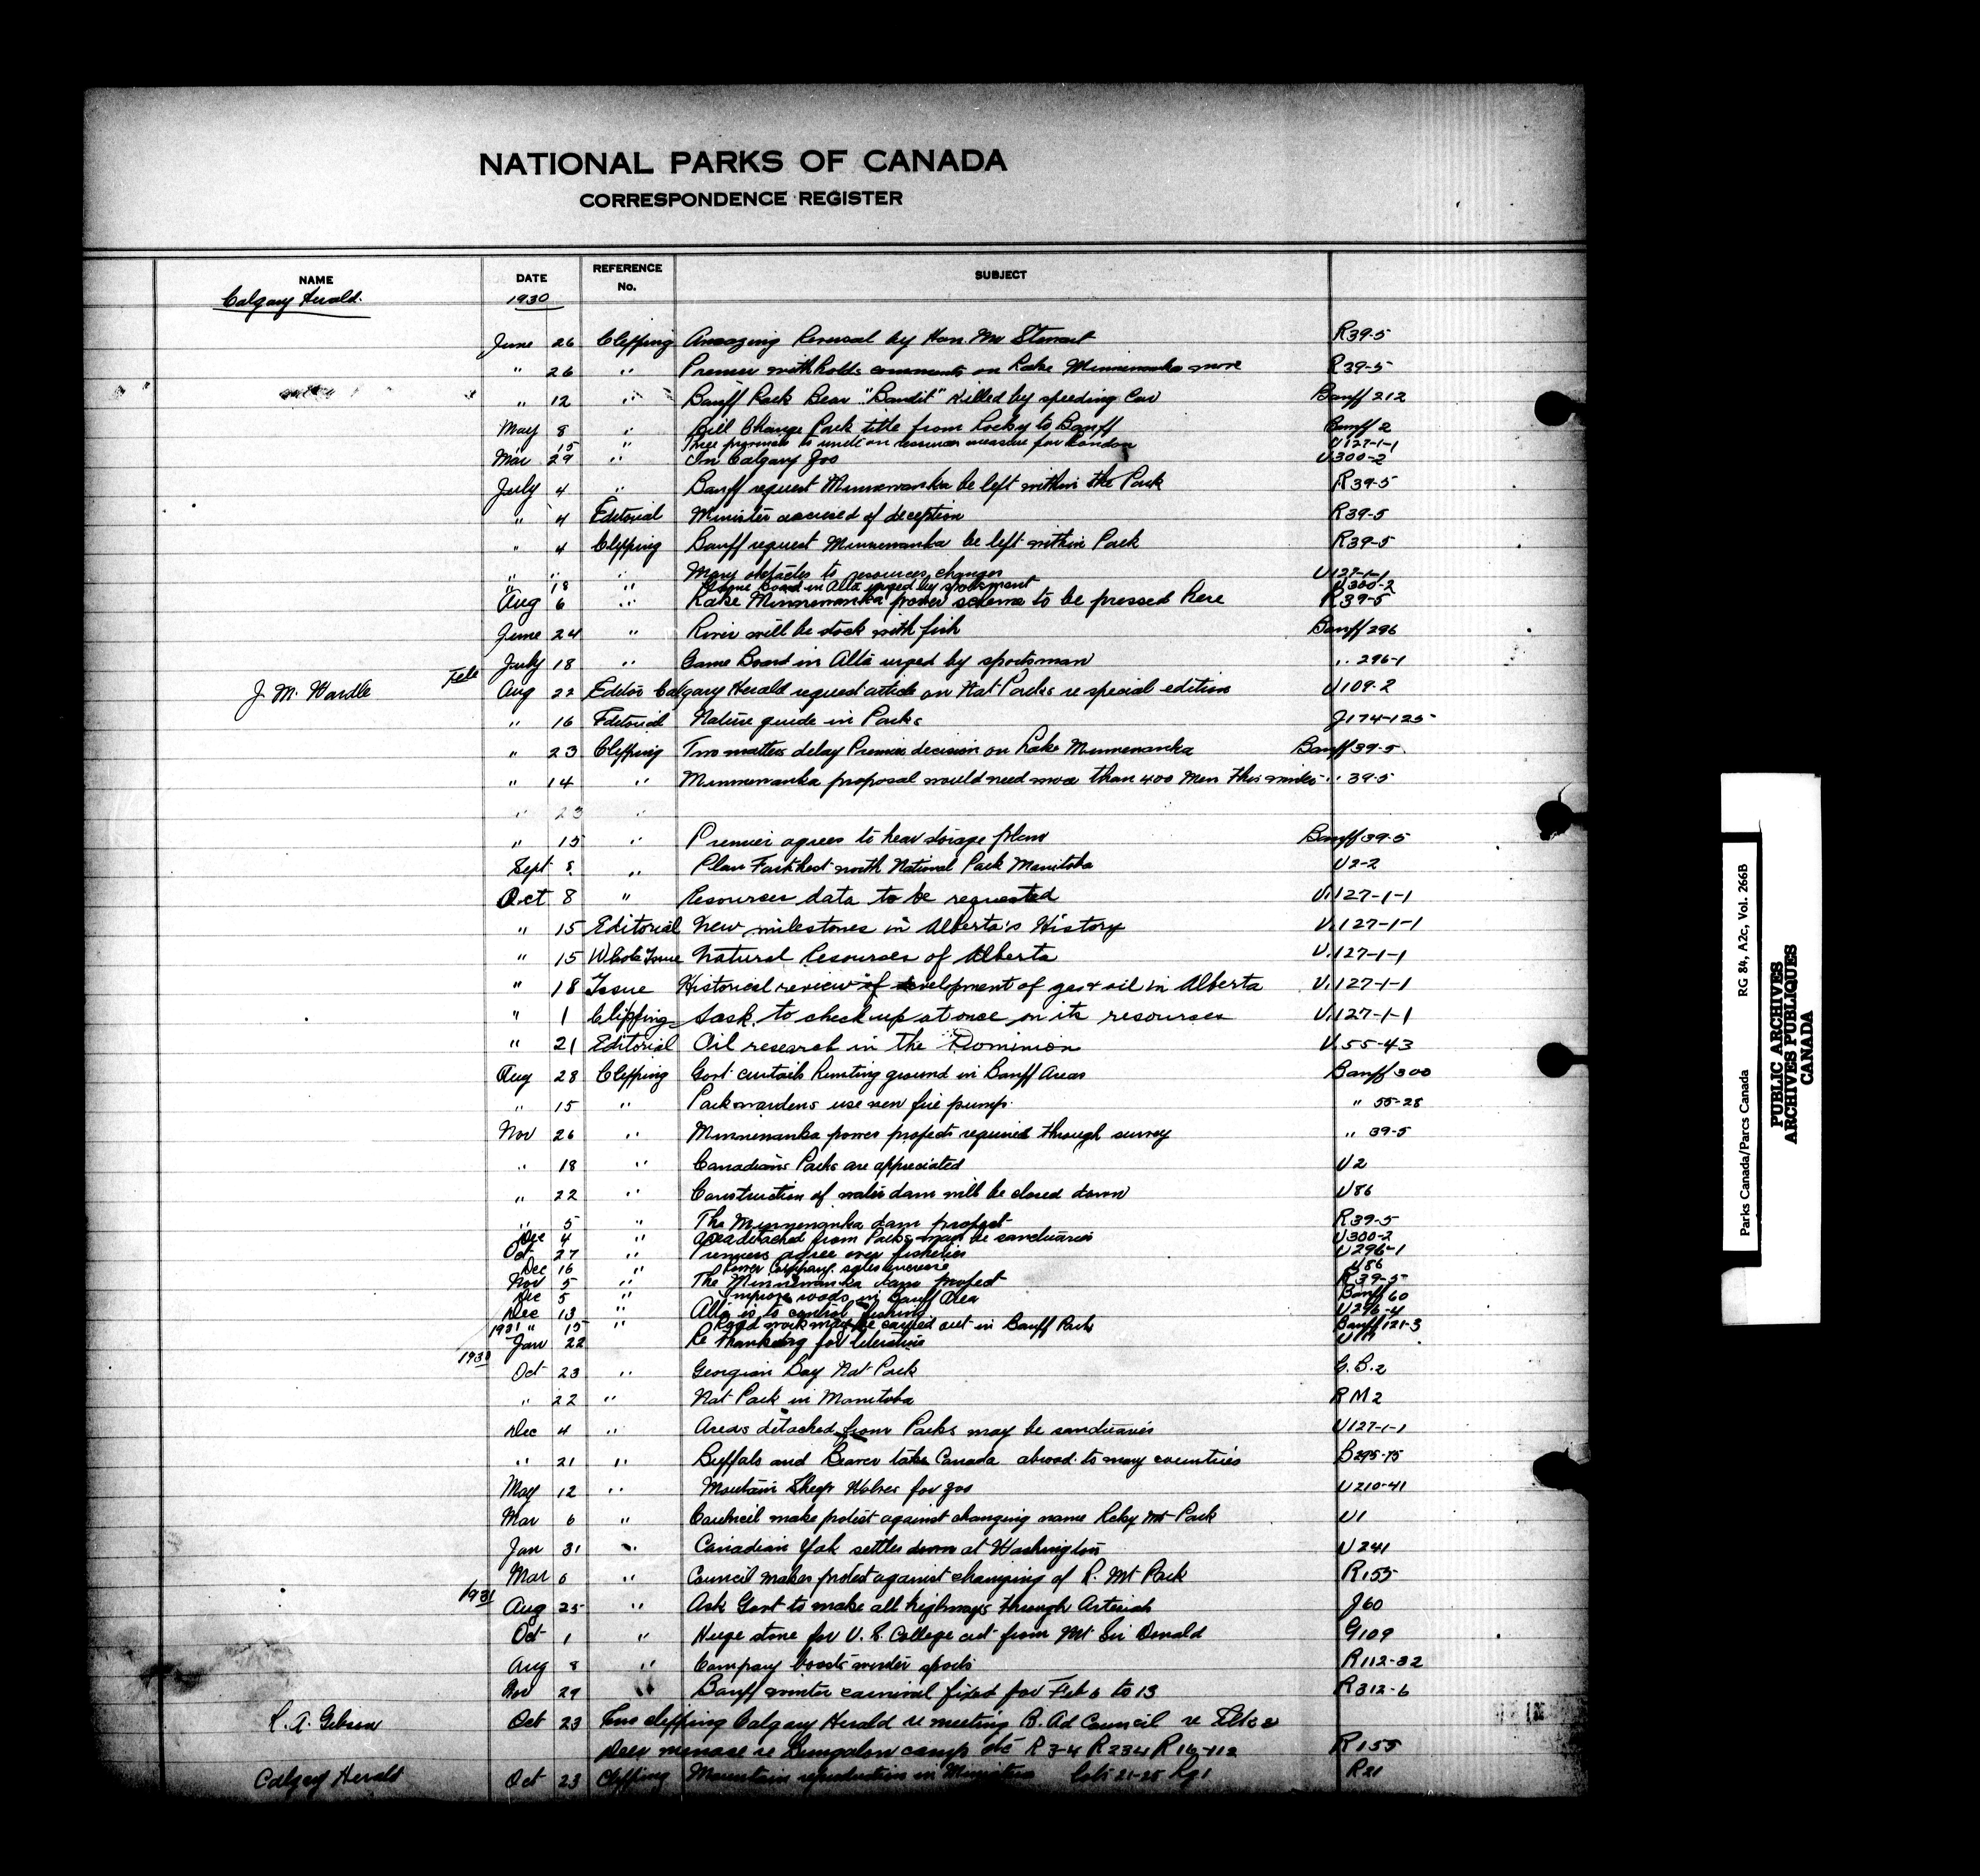 NATIONAL PARKS OF CANADA
CORRESPONDENCE REGISTER
NAME DATE REFERENCE No. SUBJECT
Calgary Herald. 1930
June 26 Clipping Amazing Reversal by Hon. Mr Stewart R39-5
" 26 " Premier withholds comments on Lake Minnewanka move R39-5
" 12 " Banff Park Bear "Bandit" killed by speeding Car Banff 212
May 8 " Bill Change Park title from Rocky to Banff Banff 2
15 " Three to unite on resources measure for London U127-1-1
Mar 29 " In Calgary Zoo U300-2
July 4 " Banff request Minnewanka be left within the Park R39-5
" 4 Editorial Minister accused of deception R39-5
" 4 Clipping Banff request Minnewanka be left within Park R39-5
" " " Many obstacles to resources changes U127-1-1
18 " Game Board in Alta urged by sportsment U300-2
Aug 6 " Lake Minnewanka power scheme to be pressed here R39-5
June 24 " River will be stock with fish Banff 296
July 18 " Game Board in Alta urged by sportsman " 296-1
J. M. Wardle Tele Aug 22 Editor Calgary Herald request article on Nat Parks re special edition U109-2
" 16 Editorial Nature guide in Parks J174-125
" 23 Clipping Two matters delay Premier decision on Lake Minnewanka Banff 39-5
" 14 " Minnewanka proposal would need more than 400 Men this winter " 39-5
" 23 "
" 15 " Premier agrees to hear storage plan Banff 39-5
Sept 8 " Plan Farthest north National Park Manitoba U2-2
Oct 8 " Resources data to be requested U.127-1-1
" 15 Editorial New milestones in Alberta's History U.127-1-1
" 15 Whole Issue Natural Resources of Alberta U.127-1-1
" 18 Issue Historical review of development of gas & oil in Alberta U.127-1-1
" 1 Clipping Sask. to check up at once on its resources U.127-1-1
" 21 Editorial Oil research in the Dominion U.55-43
Aug 28 Clipping Govt curtails hunting ground in Banff Areas Banff 300
" 15 " Park wardens use new fire pump. " 55-28
Nov 26 " Minnewanka power projects required through survey " 39-5
" 18 " Canadians Parks are appreciated U2
" 22 " Construction of water dam will be closed down U86
" 5 " The Minnewanka dam project R39-5
Dec 4 " Area detached from Parks may be sanctuaries U300-2
Oct 27 " Premiers agree over fisheries U296-1
Dec 16 " Power Company sales increase U86
Nov 5 " The Minnewanka dam project R39-5
Dec 5 " Improve roads in Banff Area Banff 60
Dec 13 " Alta is to control fishing U296-4
" 15 " Road work may be carried out in Banff Park Banff 121-3
1931 Jan 22 Re thanking for literature
1930 Oct 23 " Georgian Bay Nat Park G.B.2
" 22 " Nat Park in Manitoba RM2
Dec 4 " Areas detached from Parks may be sanctuaries U127-1-1
" 21 " Buffalo and Beaver take Canada abroad to many countries B295-15
May 12 " Mountain Sheep Wolves for zoo U210-41
Mar 6 " Council make protest against changing name Rcky Mt Park U1
Jan 31 " Canadian Yak settles down at Washington U241
Mar 6 " Council makes protest against changing of R. Mt Park R155
1931 Aug 25 " Ask Govt to make all highways through Arterials J60
Oct 1 " Huge stone for U.S. College cut from Mt Sir Donald G109
Aug 8 " Company boosts winter sports R112-32
Nov 29 " Banff winter carnival fixed for Feb 6 to 13 R312-6
R. A. Gibson Oct 23 clipping Calgary Herald re meeting B. Ad Council re Elks &
Deer menace re Bungalow camp etc R3-4 R234 R16-112 R155
Calgary Herald Oct 23 Clipping Mountain reproduction in Miniature R21
Parks Canada/Parcs Canada RG 84, A2c, Vol. 266B
PUBLIC ARCHIVES
ARCHIVES PUBLIQUES
CANADA